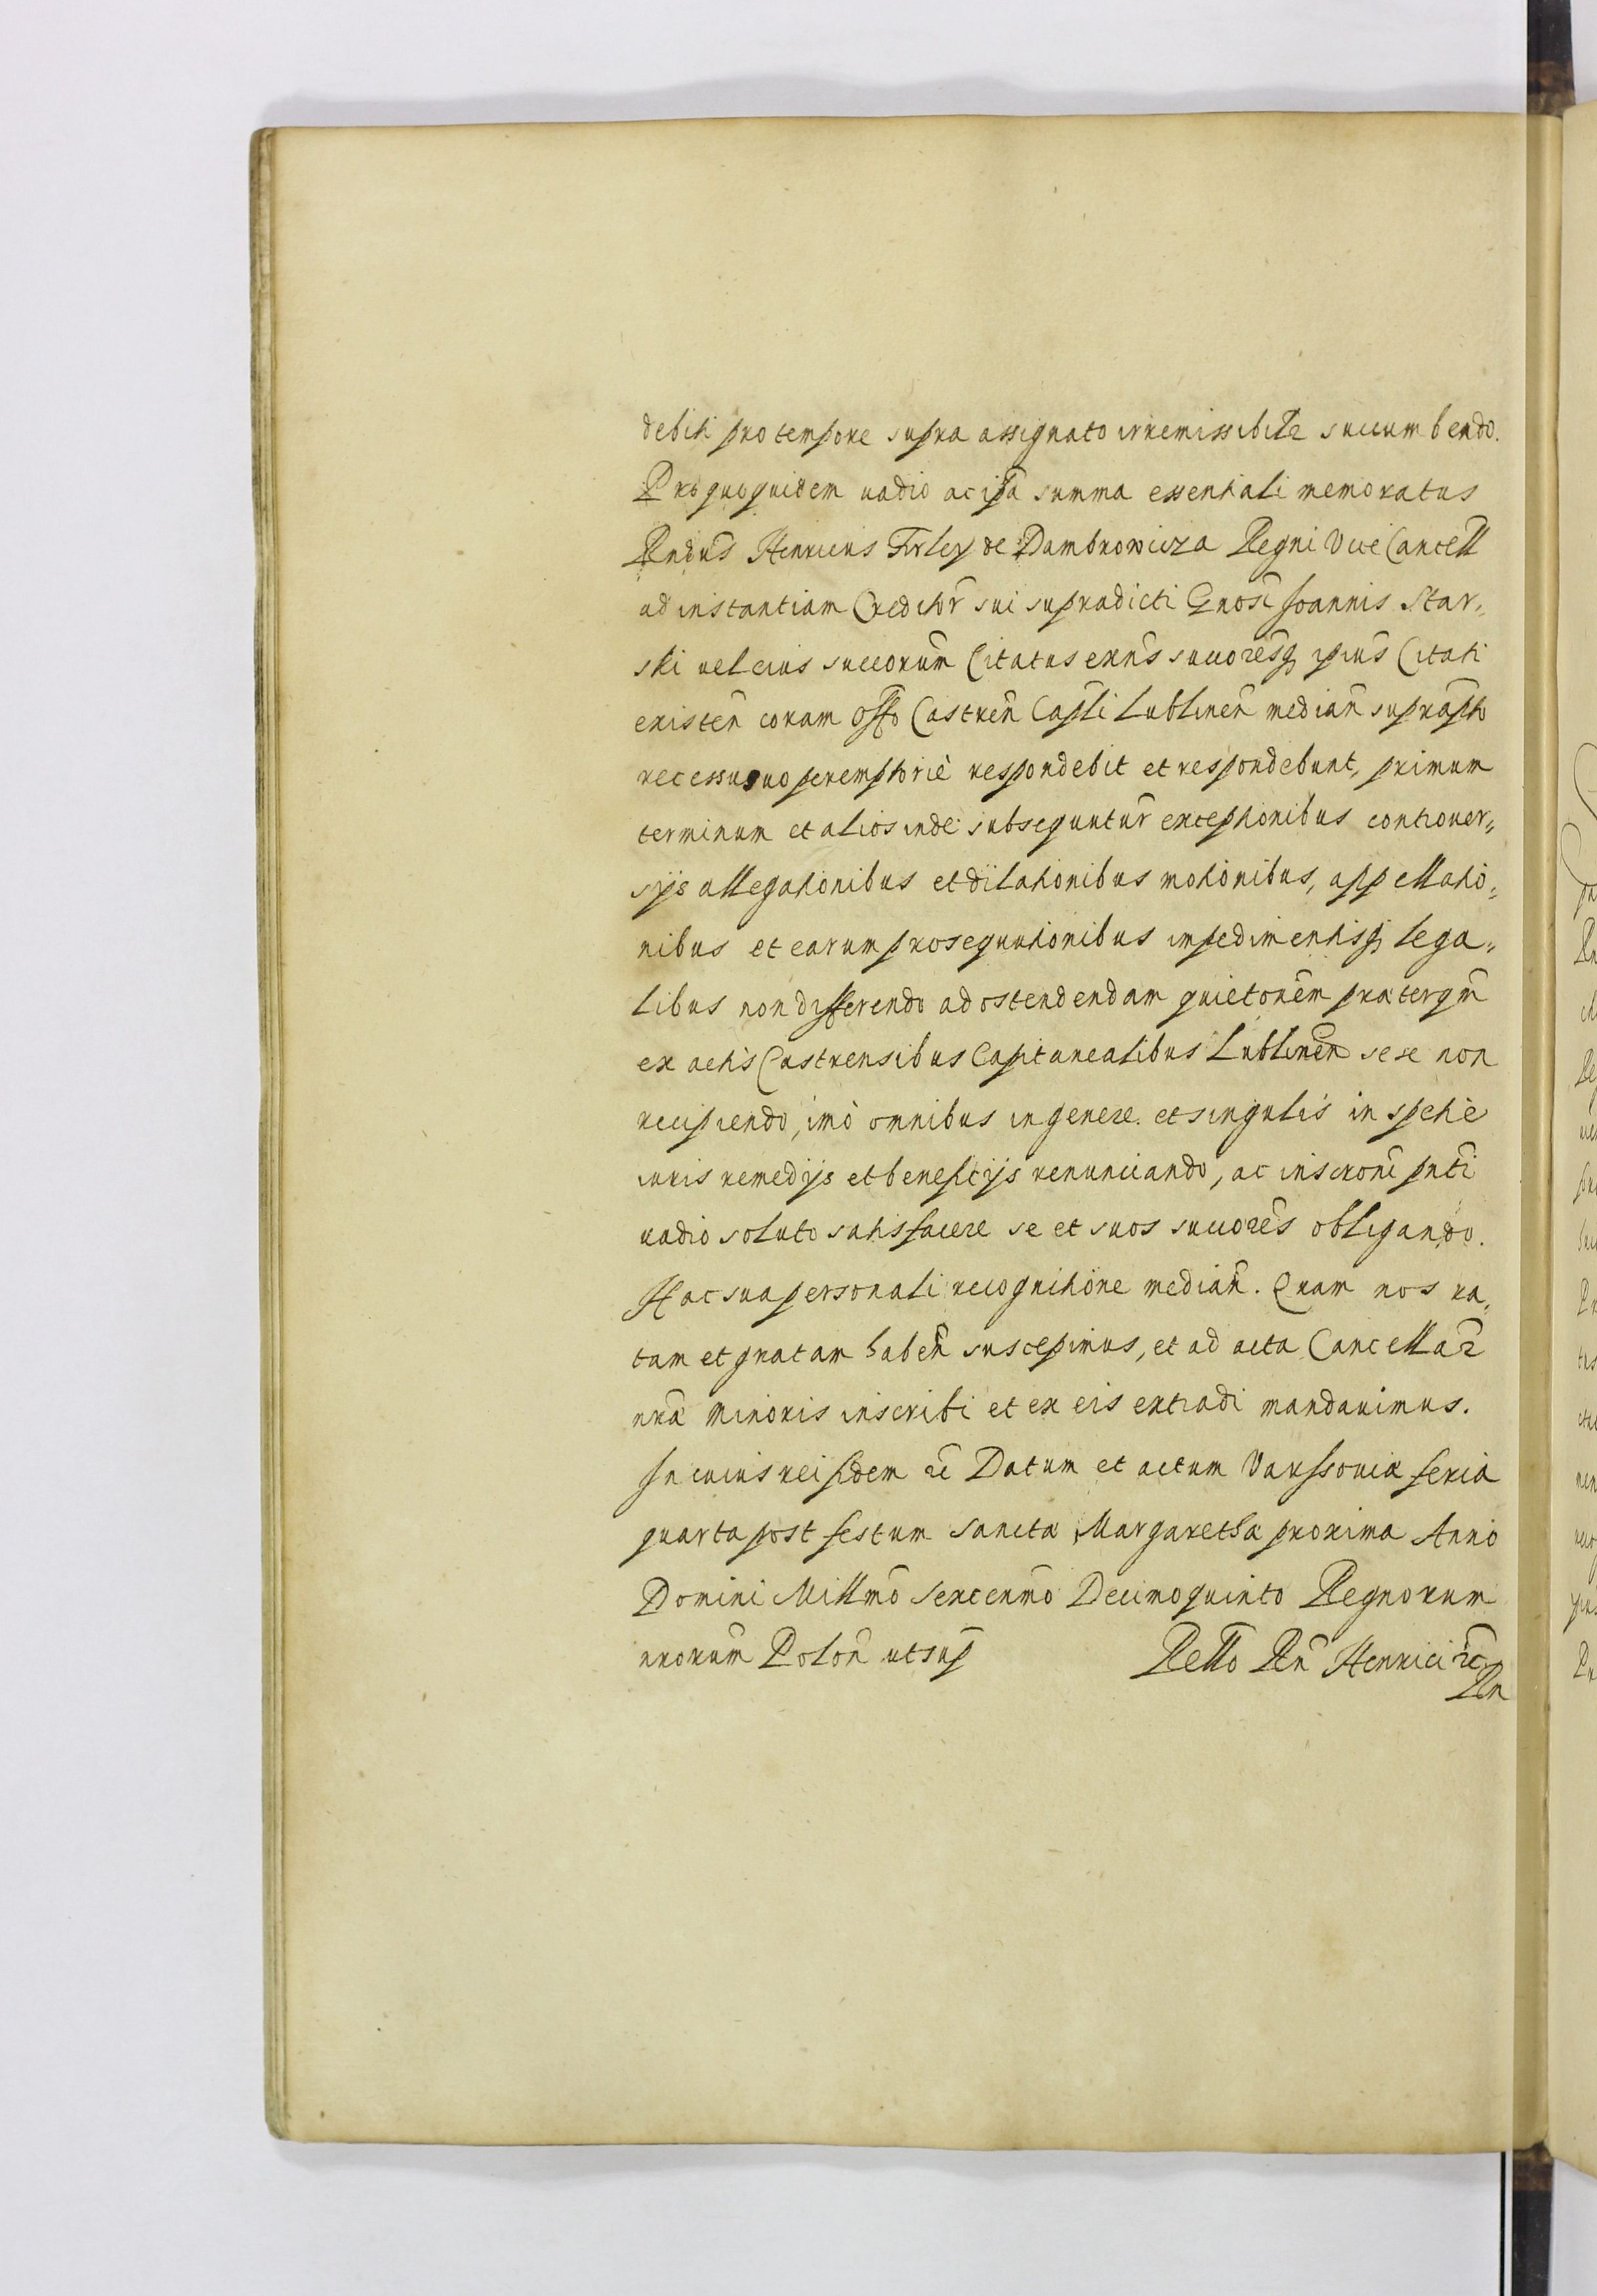 debiti pro tempore supra assignato irremissibilr succumbendo.
Pro quoquidem uadio ac ip̃a summa essentiali memoratus
Rndus̃ Henricus Firley de Dambrowicza Regni Vice Cancell̃
ad instantiam Creditor̃ sui supradicti Gnosi̴ Joannis Star„
ski uel eius succorum̃ Citatus exñs succoresq̃ ipius̃ Citati
existeñ coram Offo̴ Castreñ Capli̴ Lublineñ mediañ suprap̃to
recessu suo peremptoriè respondebit et respondebunt, primum
terminum et alios inde subsequuntur̃ exceptionibus controuer„
sijs allegationibus et dilationibus motionibus, appellatio„
nibus et earum prosequutionibus impedimentisq; lega„
libus non differendo ad ostendendam quietonem̃ præterqm̃
ex actis Castrensibus Capitanealibus Lublineñ sese non
recipiendo, imò omnibus in genere et singulis in spetiè
iuris remedijs et beneficijs renunciando, ac inscroni̴ pnti̴
uadio soluto satisfacere se et suos succores̃ obligando.
Hac sua personali recognitione mediañ. Quam nos ra„
tam et gratam habeñ suscepimus, et ad acta Cancellar̃
nrã minoris inscribi et ex eis extradi mandauimus.
In cuius rei fidem rc̃ Datum et actum Varssouiæ feria
quarta post festum Sanctæ Margarethæ proxima Anno
Domini Millmõ Sexcenmõ Decimoquinto Regnorum
nrorum̃ Poloñ ut sup̃ Retto̴ Rñ Henrici rc̃
Rn